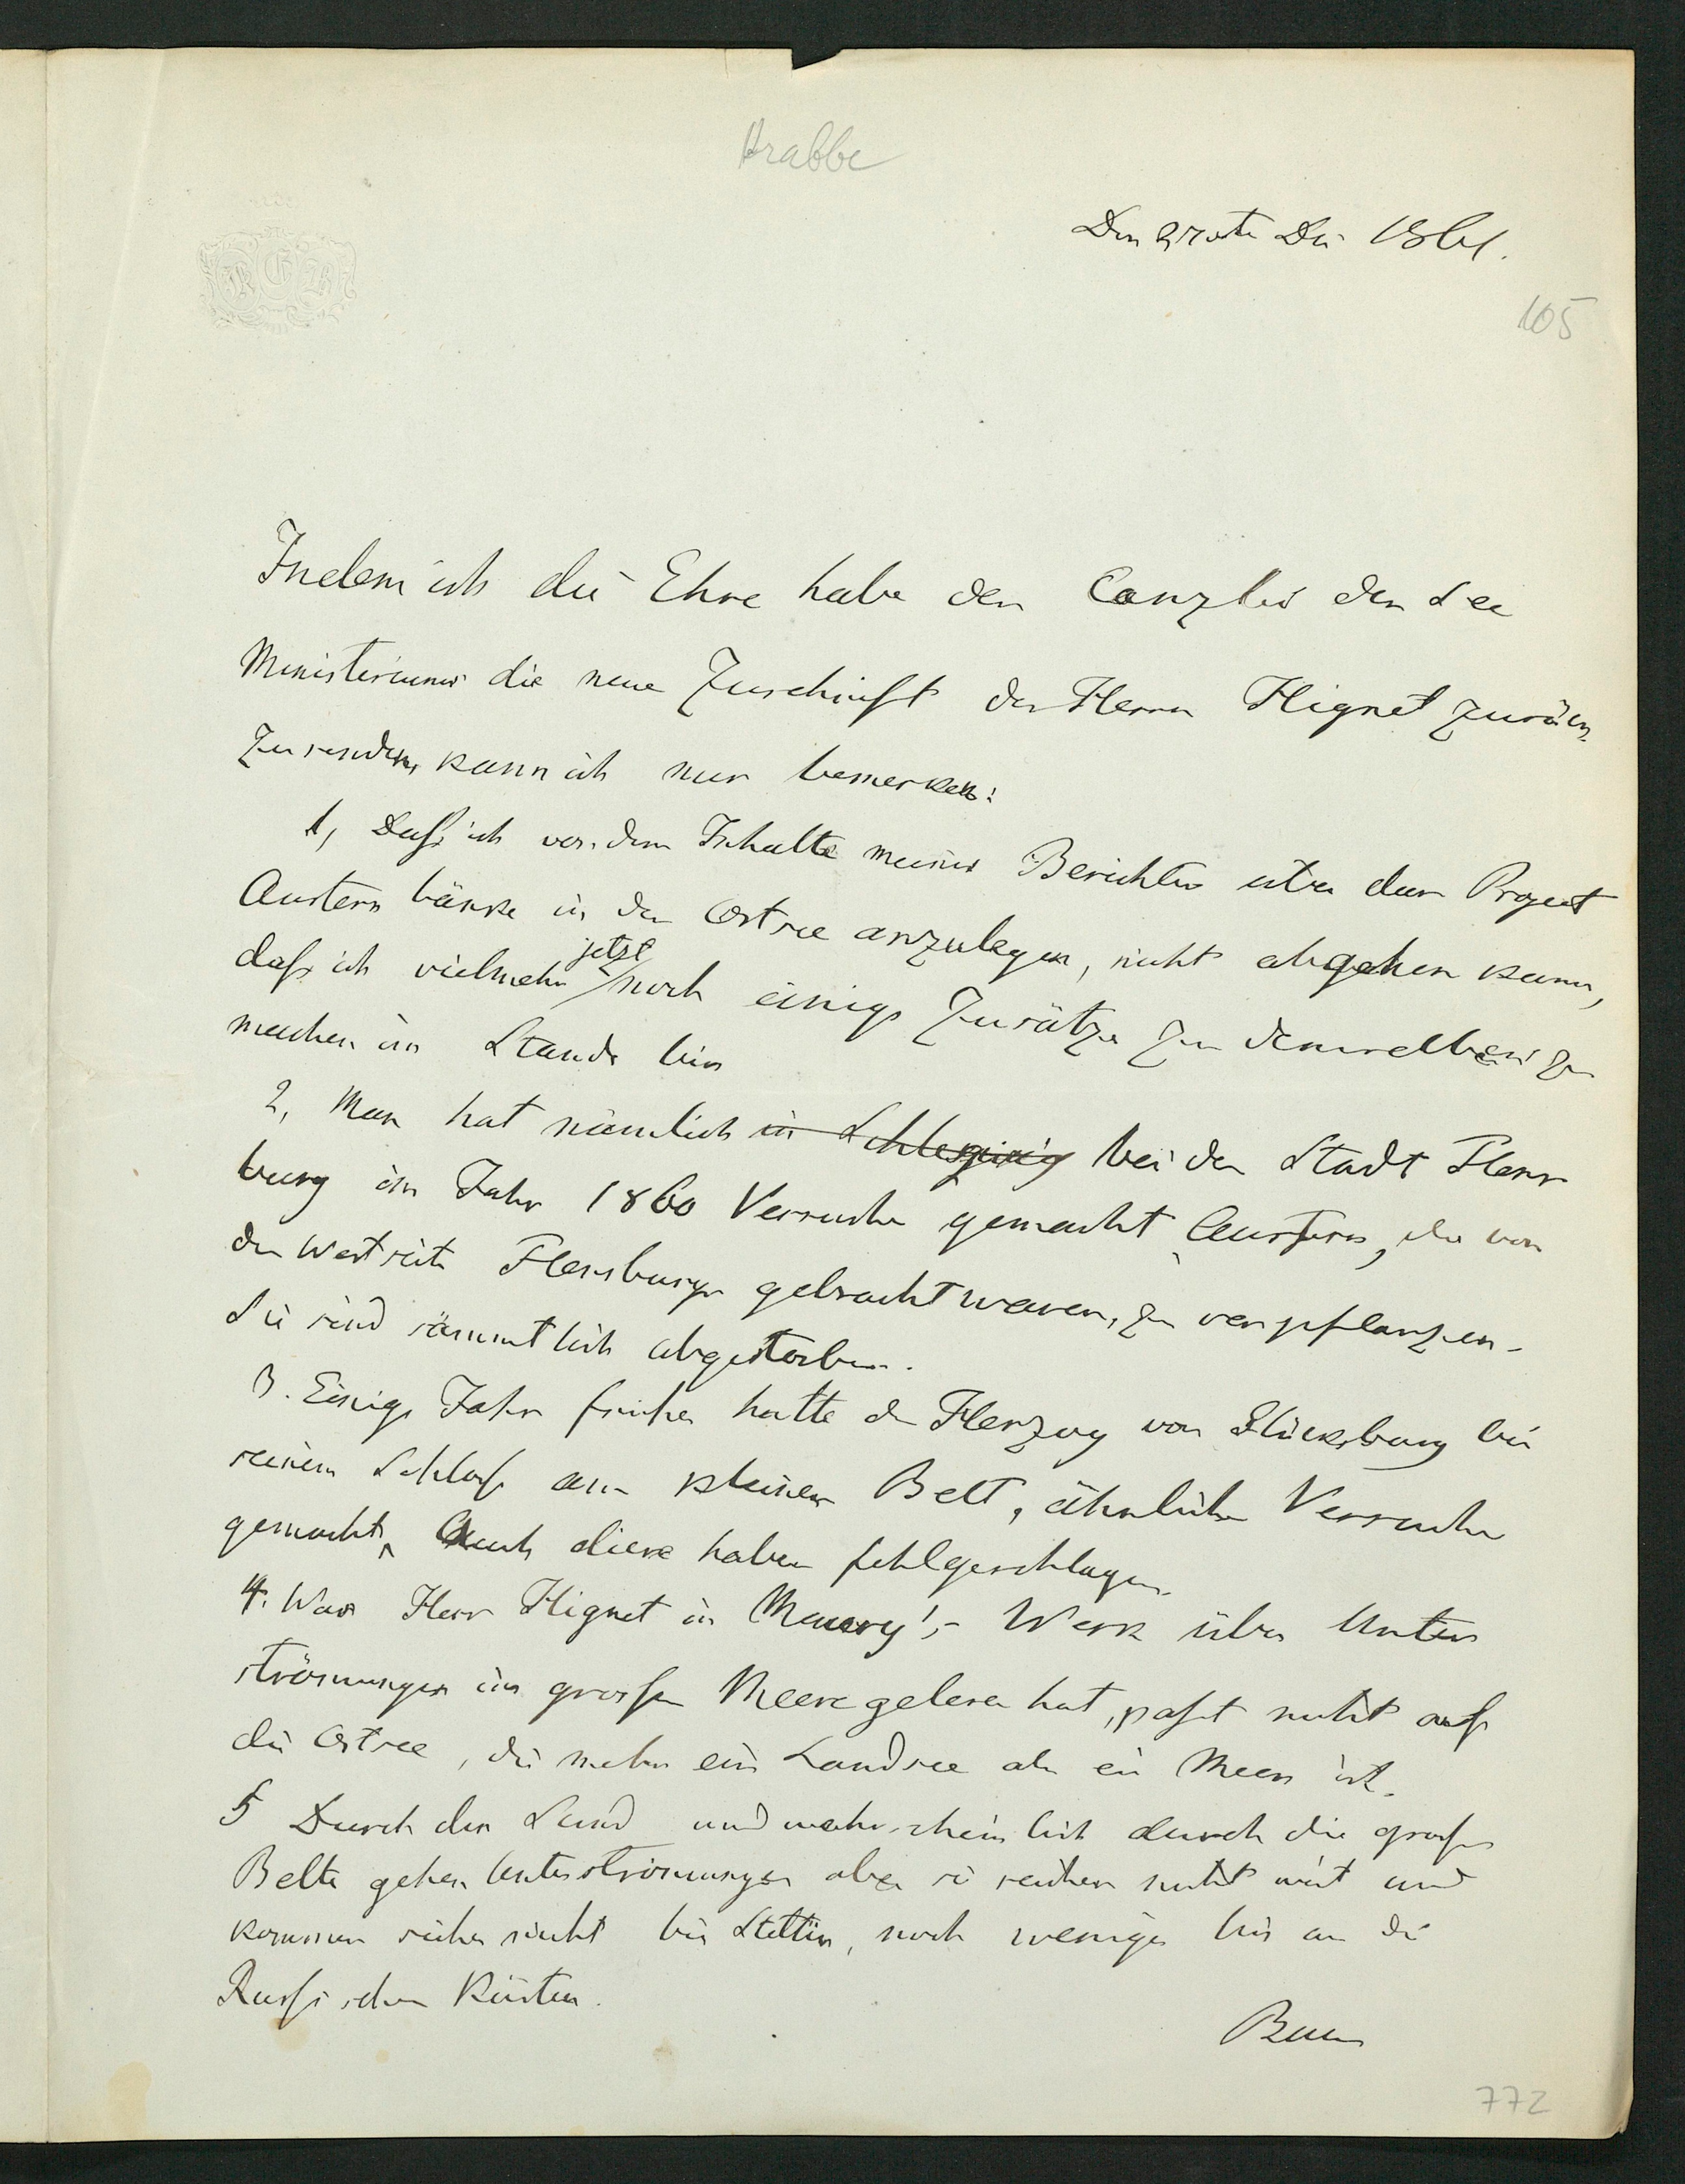 Krabbe
Den Dec 1861.
105
Indem ich die Ehre habe der Canzlei des See
Ministeriums die neue Zuschrift des Herrn Hignet zurück
zu senden, kann ich nur bemerken:
1, Daß ich von dem Inhalte meines Berichtes über das Project
Austern bänke in der Ostsee anzulegen, nicht abgehen kann,
daß ich vielmehr jetzt noch einige Zusätze zu demselben zu
machen im Stande bin
2, Man hat nämlich in Schleswig bei der Stadt Flens
burg im Jahr 1860 Versuche gemacht Austern, die von
der Westseite Flensburgs gebracht waren, zu verpflanzen.
Sie sind sämmtlich abgestorben.
3. Einige Jahr früher hatte der Herzog von Glücksburg bei
seinem Schloß am kleinen Belt, ähnliche Versuche
gemacht, Auch diese haben fehlgeschlagen.
4. Was Herr Hignet in Maury's Werk über Unter
strömungen im großen Meere gelesen hat, paßt nicht auf
die Ostsee, die mehr ein Landsee als ein Meer ist.
5 Durch den Sund und wahrscheinlich durch die großen
Belte gehen Unterströmungen aber sie reichen nicht weit und
kommen sicher nicht bis Stettin, noch weniger bis an die
Russischen Küsten.
Baer
772